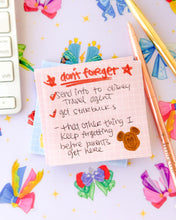 don't forget
send info to disney
travel agent
get starbucks
- that other thing I
keep forgetting
before parents
get here